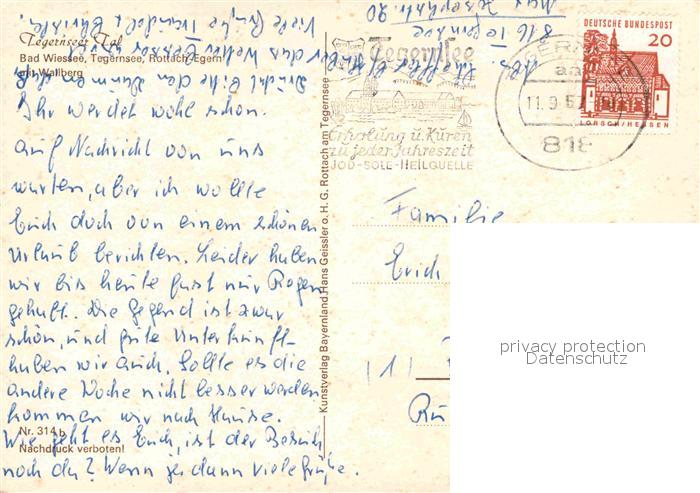 Tegernseer Tal
Bad Wiessee, Tegernsee, Rottach-Egern
mit Wallberg
Ihr werdet wohl schon
auf Nachricht von uns
warten, aber ich wollte
Euch doch von einem schönen
Urlaub berichten. Leider haben
wir bis heute fast nur Regen
gehabt. Die Gegend ist zwar
schön, und gute Unterkunft
haben wir auch. Sollte es die
andere Woche nicht besser werden
kommen wir nach Hause.
Wie geht es Euch, ist der Besuch
noch da? Wenn ja dann viele Grüße.
Drückt bitte den Daumen
das Wetter besser wird
Viele Grüße
Nr. 314 b
Nachdruck verboten!
Kunstverlag Bayernland, Hans Geissler o. H. G. Rottach am Tegernsee
Abs.
816 Tegernsee
Tegernsee
Erholung u. Kuren
zu jeder Jahreszeit
JOD-SOLE-HEILQUELLE
11.9.67
818
DEUTSCHE BUNDESPOST
20
LORSCH/HESSEN
Familie
Erich
(1)
privacy protection
Datenschutz